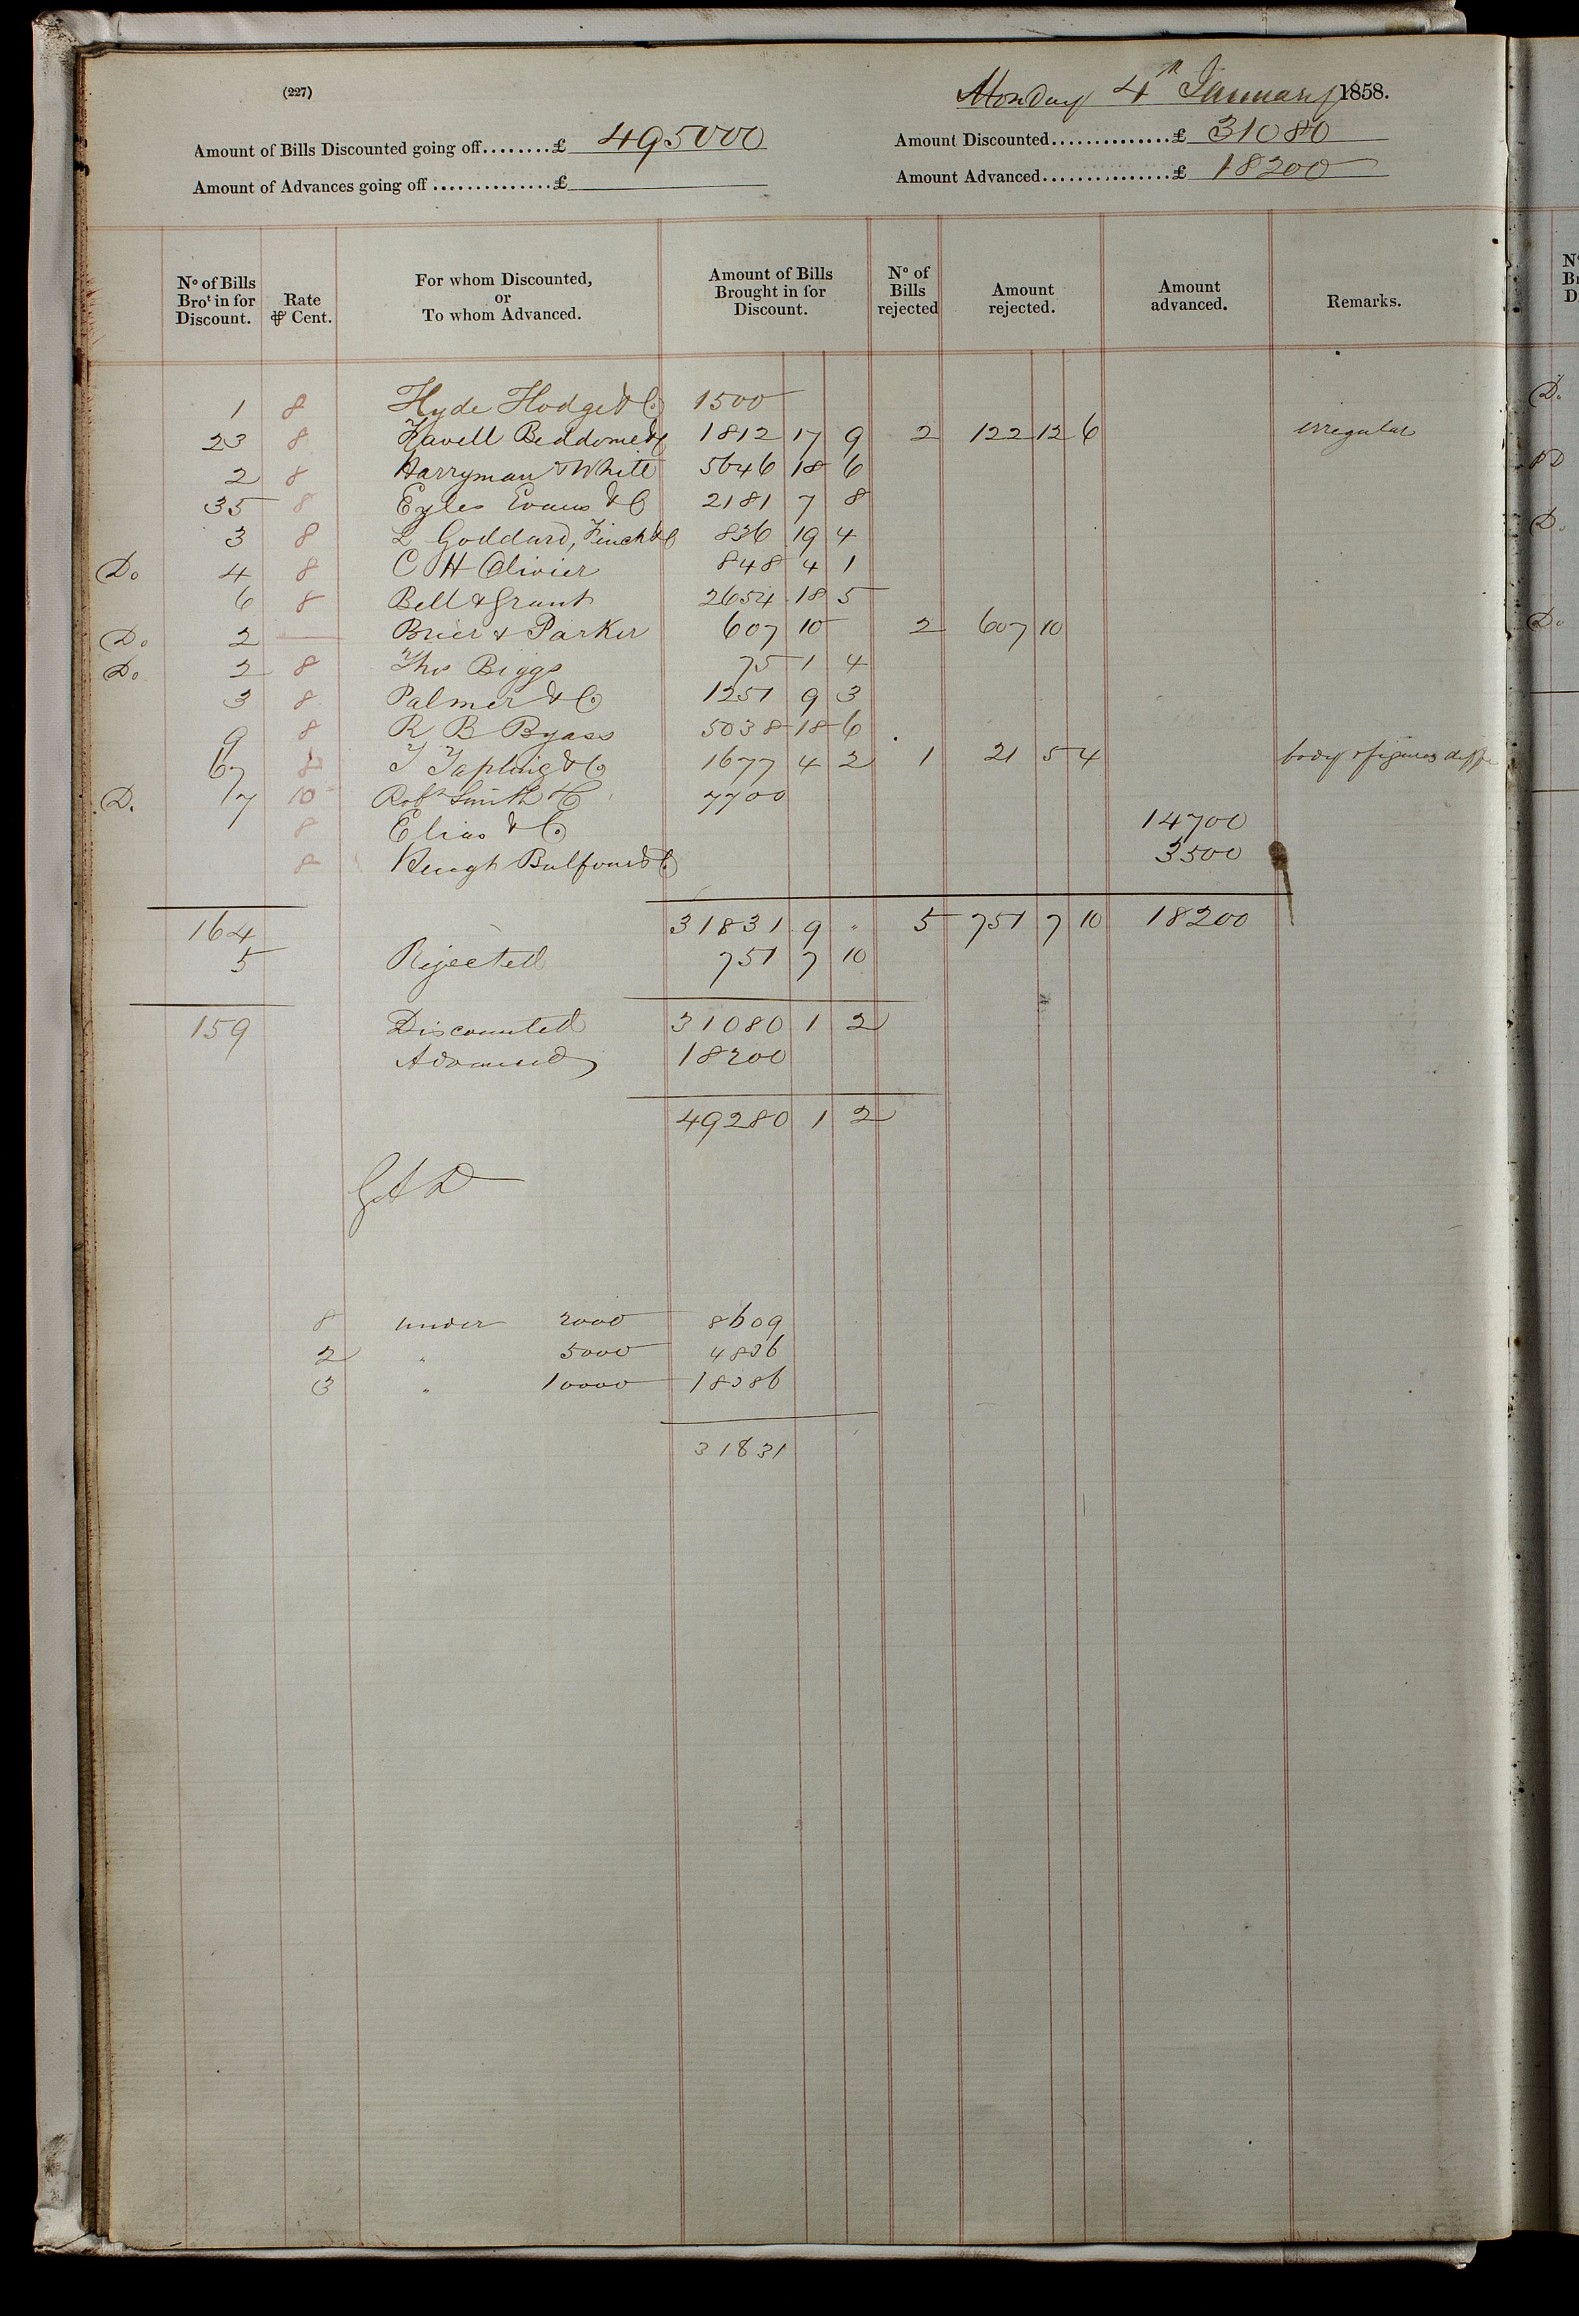 (227)
Monday 4th January 1858.
Amount of Bills Discounted going off........£ 495000
Amount Discounted...............£ 31080
Amount of Advances going off ...............£
Amount Advanced................£ 18200
No of Bills Brot in for Discount. Rate ⅌ Cent. For whom Discounted, or To whom Advanced. Amount of Bills Brought in for Discount. No of Bills rejected Amount rejected. Amount advanced. Remarks.
1 8 Hyde Hodge & Co 1500
23 8 Favell Beddome & Co 1812 17 9 2 122 12 6 irregular
2 8 Harryman & White 5646 18 6
35 8 Eyles Evans & Co 2181 7 8
3 8 L Goddard, Finch & Co 836 19 4
Do 4 8 C H Olivier 848 4 1
6 8 Bell & Grant 2654 18 5
Do 2 — Brier & Parker 607 10 2 607 10
Do 2 8 Thos Biggs 75 1 4
3 8 Palmer & Co 1251 9 3
9 8 R B Byass 5038 18 6
67 8 T Tapling & Co 1677 4 2 1 21 5 4 body & figures differ
Do 7 10 Robt Smith & Co 7700
8 Elias & Co 14700
8 Hugh Balfour & Co 3500
164 31831 9 " 5 751 7 10 18200
5 Rejected 751 7 10
159 Discounted 31080 1 2
Advanced 18200
49280 1 2
8 under 2000 8609
2 " 5000 4836
3 " 10000 18386
31831